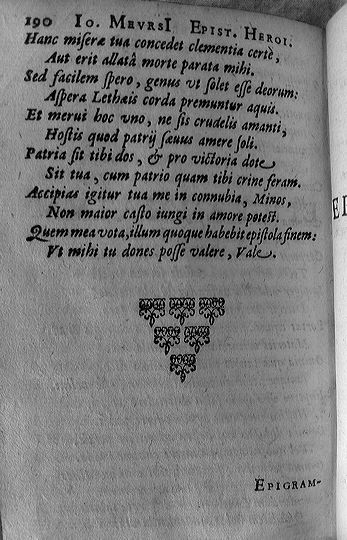 190 IO. MEVRSI EPIST. HEROI.
Hanc miseræ tua concedet clementia certè,
Aut erit allatâ morte parata mihi.
Sed facilem spero, genus vt solet esse deorum:
Aspera Lethæis corda premuntur aquis.
Et merui hoc vno, ne sis crudelis amanti,
Hostis quod patrij sæuus amere soli.
Patria sit tibi dos, & pro victoria dote
Sit tua, cum patrio quam tibi crine feram.
Accipias igitur tua me in connubia, Minos,
Non maior casto iungi in amore potest.
Quem mea vota, illum quoque habebit epistola finem:
Vt mihi tu dones posse valere, Vale.
EPIGRAM-